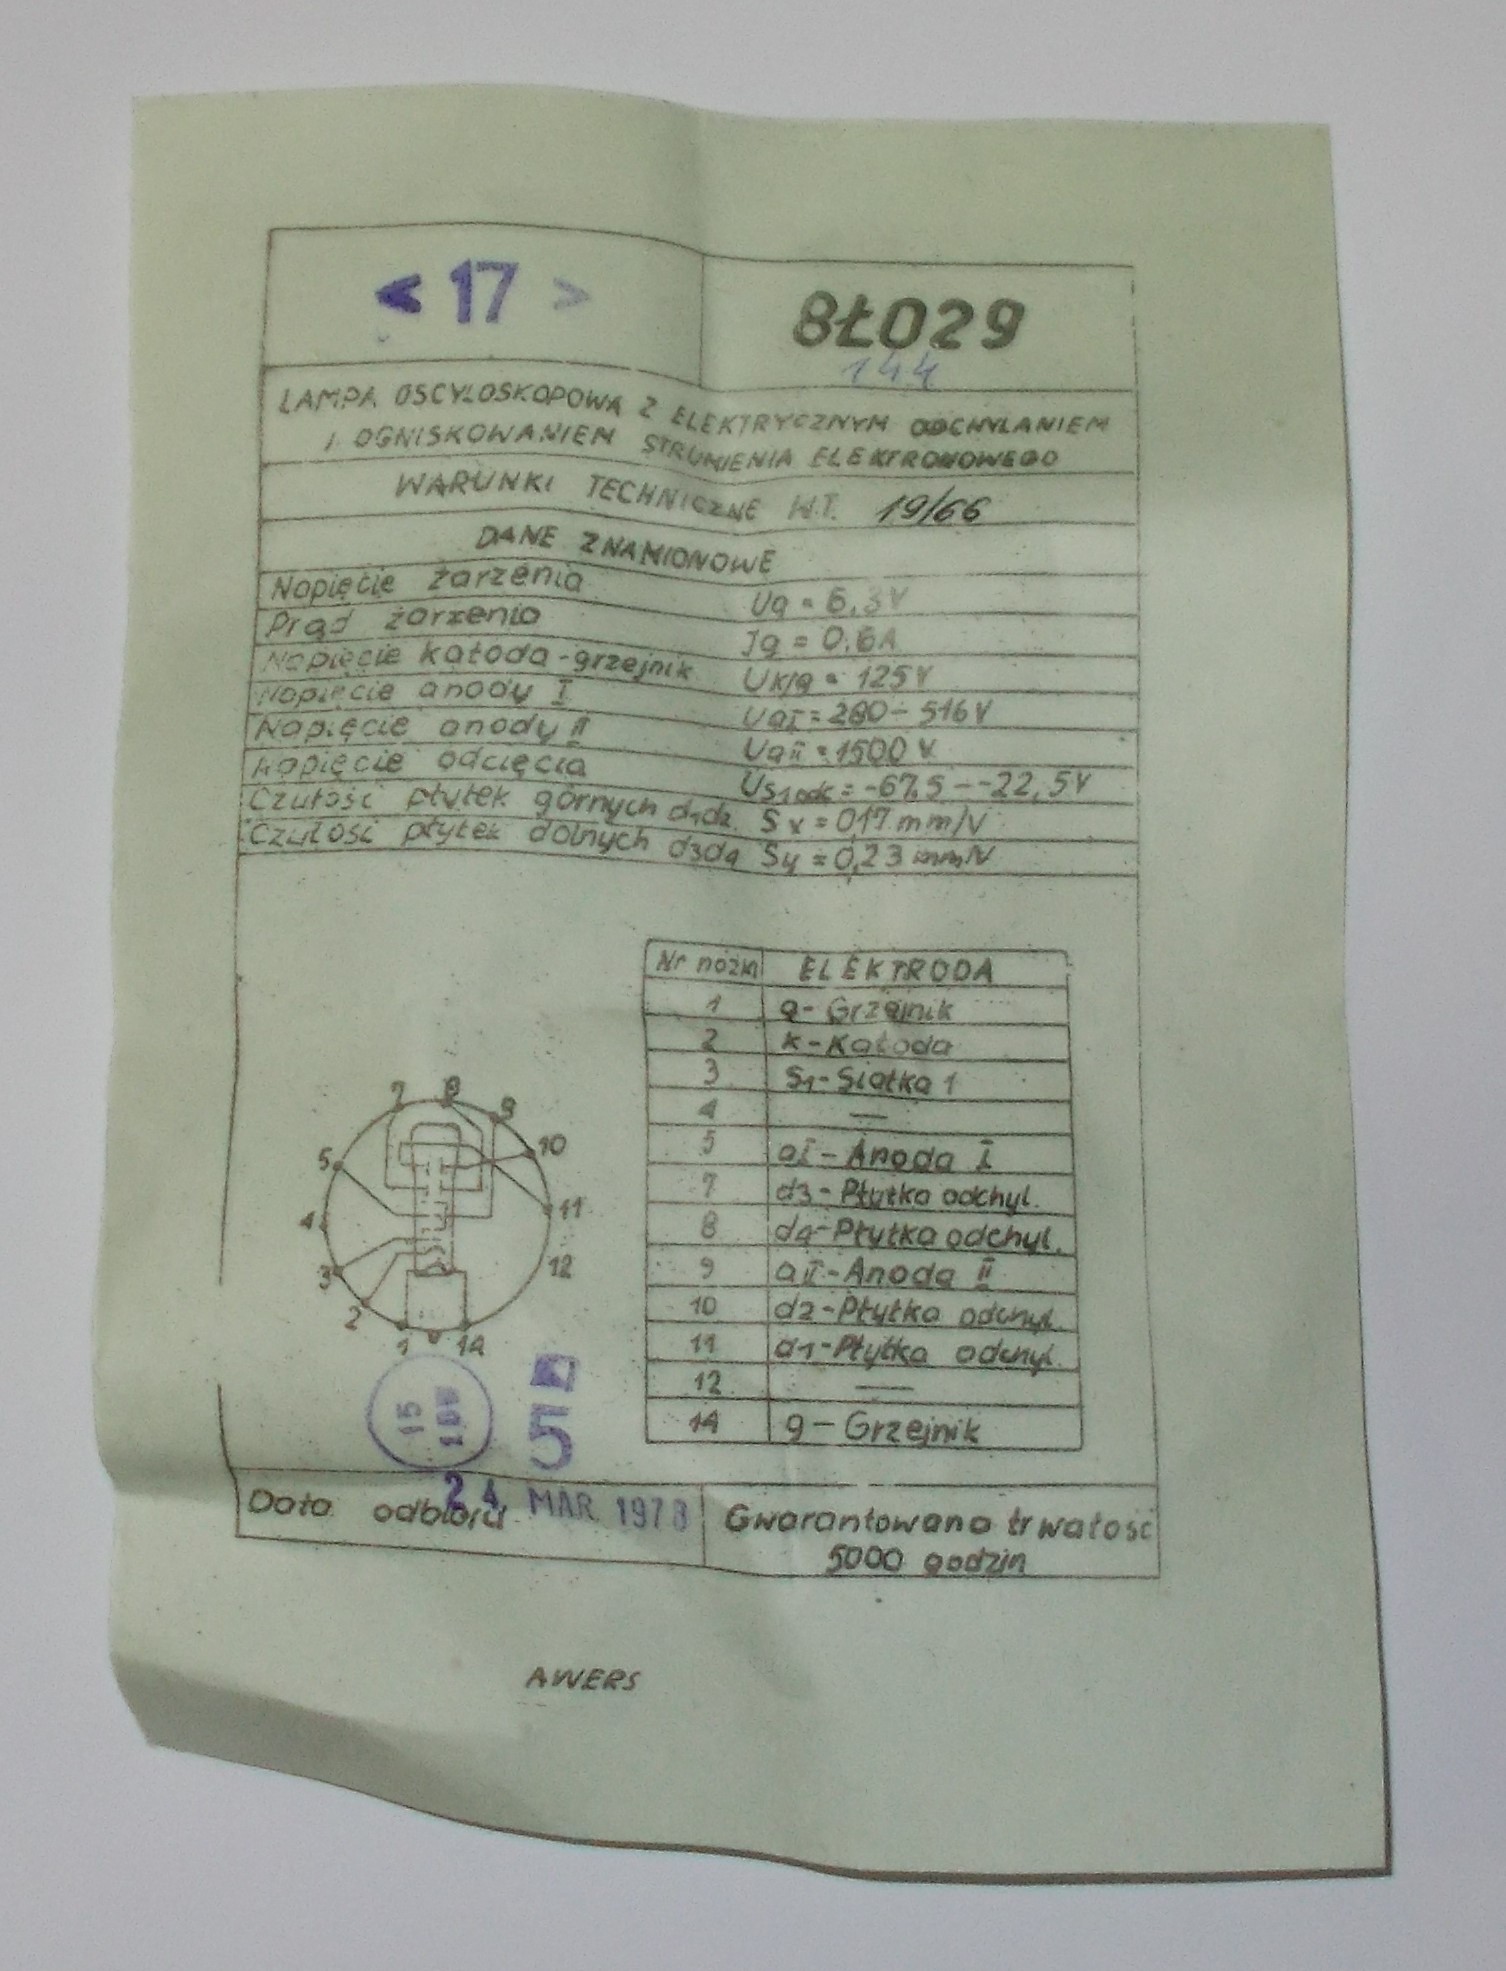 < 17 >
8ŁO29
144
LAMPA OSCYLOSKOPOWA Z ELEKTRYCZNYM ODCHYLANIEM
I OGNISKOWANIEM STRUMIENIA ELEKTRONOWEGO
WARUNKI TECHNICZNE W.T. 19/66
DANE ZNAMIONOWE
Napięcie żarzenia Ug = 6,3V
Prąd żarzenia Jg = 0,6A
Napięcie katoda-grzejnik Uk/g = 125V
Napięcie anody I UaI = 280 – 516V
Napięcie anody II UaII = 1500V
Napięcie odcięcia Us1odc = -67,5 – -22,5V
Czułość płytek górnych d1d2 Sx = 0,17 mm/V
Czułość płytek dolnych d3d4 Sy = 0,23 mm/V
Nr nóżki ELEKTRODA
1 g - Grzejnik
2 k - Katoda
3 S1 - Siatka 1
4 —
5 aI - Anoda I
7 d3 - Płytka odchyl.
8 d4 - Płytka odchyl.
9 aII - Anoda II
10 d2 - Płytka odchyl.
11 d1 - Płytka odchyl.
12 —
14 g - Grzejnik
7 8 9
5 10
4 11
3 12
2
1 14
15
5
Data odbioru 24 MAR. 1978
Gwarantowana trwałość
5000 godzin
AWERS